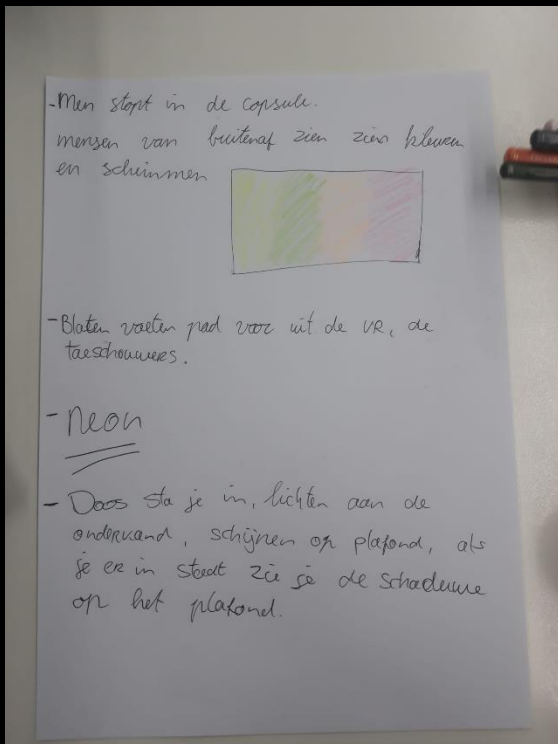 -Men stapt in de capsule.
mensen van buitenaf zien zien kleuren
en schimmen
-Blaten voeten pad voor uit de VR, de
taeschouwers.
- Neon
- Doos sta je in, lichten aan de
onderkand, schijnen op plafond, als
je er in staat zie je de schaduwe
op het plafond.